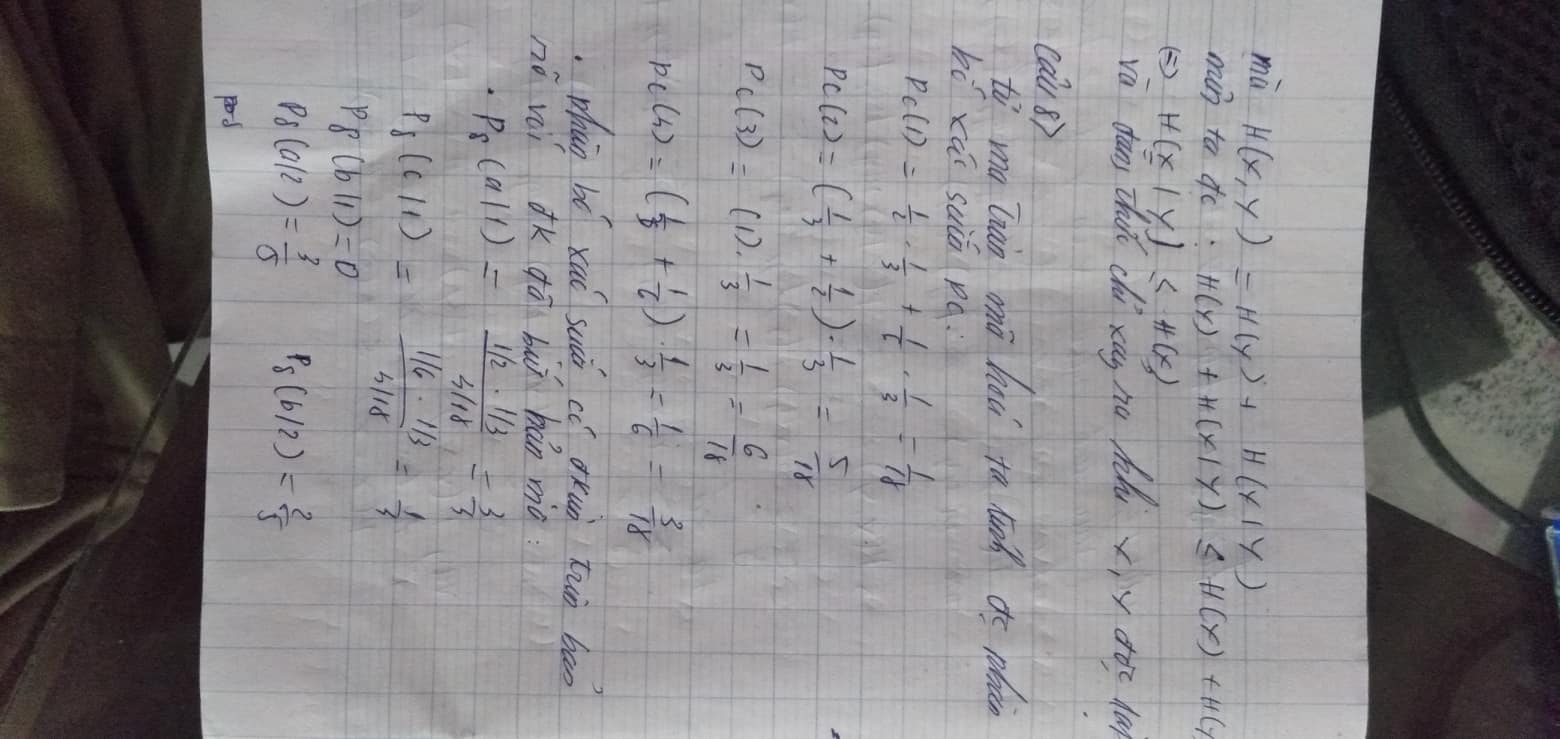 mà H(X,Y) = H(Y) + H(X|Y)
ta đc : H(Y) + H(X|Y) ≤ H(X) + H(Y
(=) H(X|Y) ≤ H(X)
và dấu chỉ xảy ra khi X, Y độc lập
Câu 8>
từ ma trận mã hoá ta tính đc phân
bố xác suất Pc :
Pc(1) = 1/2 . 1/3 + 1/6 . 1/3 = /18
Pc(2) = (1/3 + 1/2) . 1/3 = 5/18
Pc(3) = (1) . 1/3 = 1/3 = 6/18
Pc(4) = (1/3 + 1/6) . 1/3 = 1/6 = 3/18
. phân bố xác suất có trên bản
rõ với đk đã biết bản mã :
. Pp(a|1) = 1/2 . 1/3 / 4/18 = 3/
Pp(c|1) = 1/6 . 1/3 / 4/18 = 1/
Pp(b|1) = 0
Pp(a|2) = 3/5 Pp(b|2) = 2/5